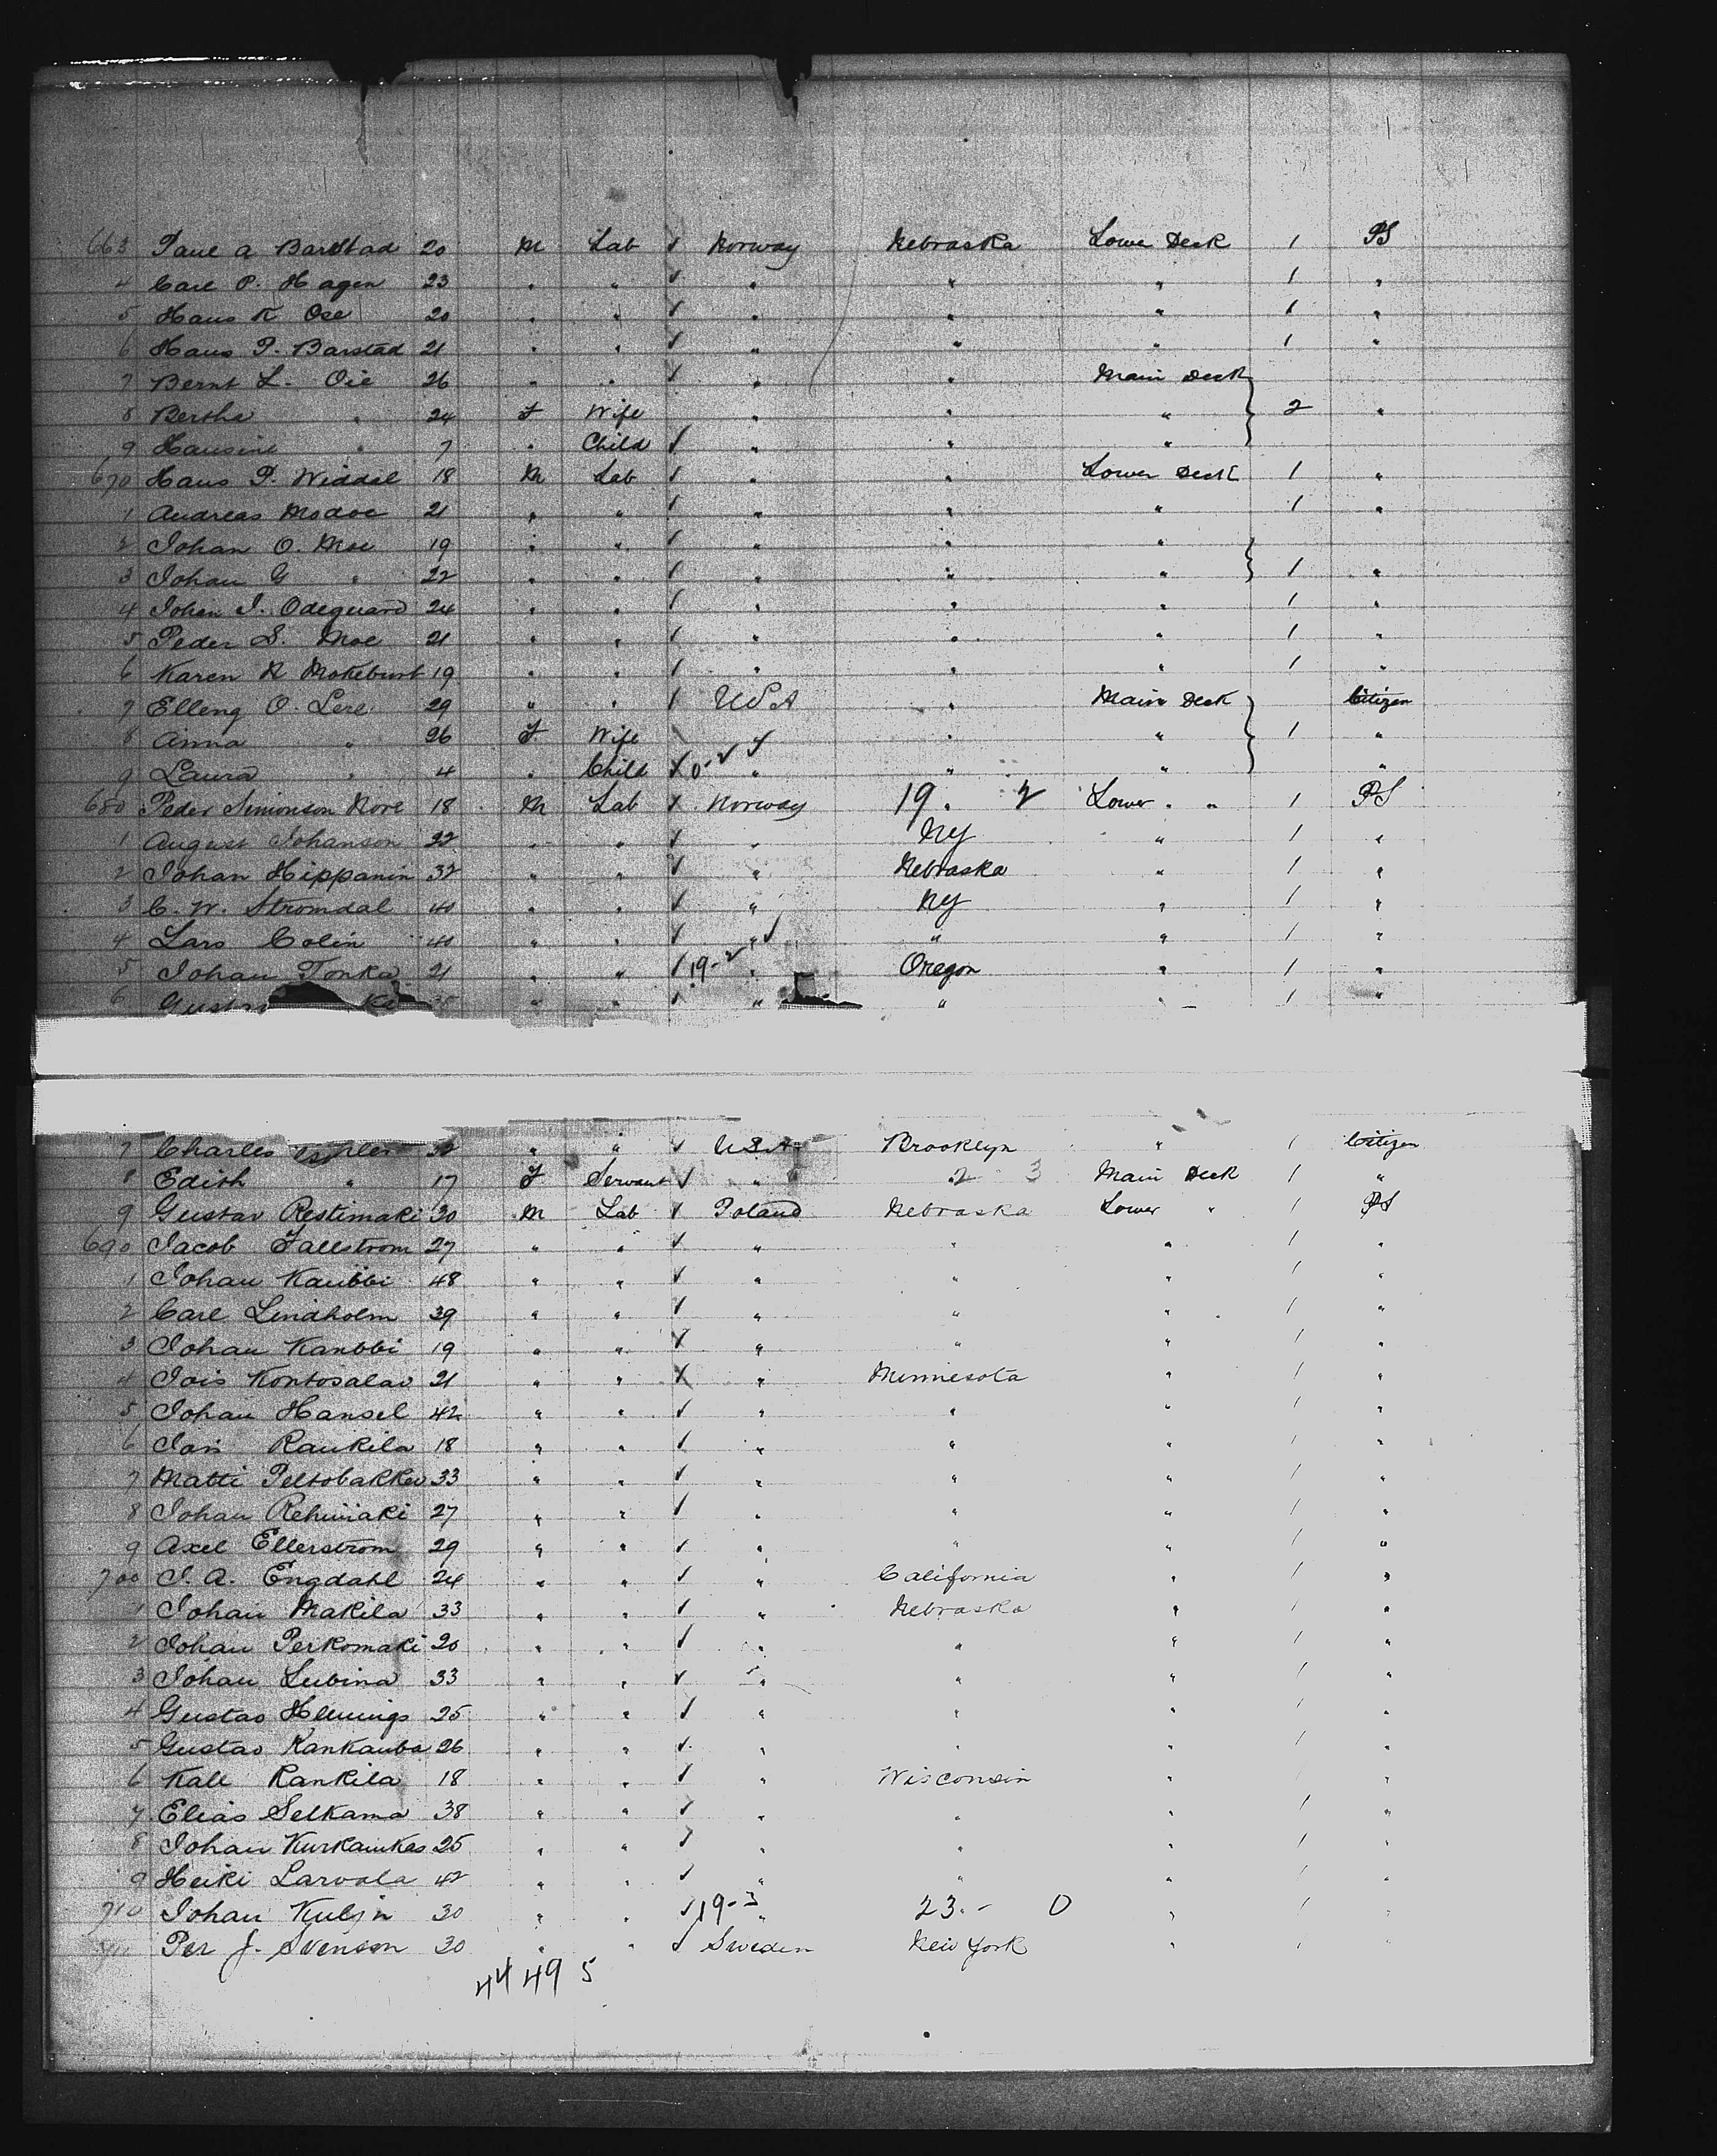 663 Paul A Barstad 20 M Lab ✓ Norway Nebraska Lower Deck 1 PS
4 Carl P. Hagen 23 " " ✓ " " " 1 "
5 Hans K Ose 20 " " ✓ " " " 1 "
6 Hans P. Barstad 21 " " ✓ " " " 1 "
7 Bernt L. Oie 26 " " ✓ " " Main Deck
8 Bertha " 24 F Wife " " " 2 "
9 Hansine " 7 " Child ✓ " " "
670 Hans P. Widdel 18 M Lab ✓ " " Lower Deck 1 "
1 Andreas Modoe 21 " " ✓ " " " 1 "
2 Johan O. Moe 19 " " ✓ " " "
3 Johan G " 22 " " ✓ " " " 1 "
4 Johan I. Odeguard 24 " " ✓ " " " 1 "
5 Peder S. Moe 21 " " ✓ " " " 1 "
6 Karen 19 " " ✓ " " " 1 "
7 Elleng O. Lere 29 " " ✓ USA " Main Deck Citizen
8 Anna " 26 F Wife " " 1 "
9 Laura " 4 " Child 0-2 " " " "
680 Peder Simonson Nore 18 M Lab ✓ Norway 19 " 2 Lower " 1 PS
1 August Johanson 22 " " ✓ " NY " 1 "
2 Johan Hippanin 32 " " ✓ " Nebraska " 1 "
3 C. W. Stromdal 40 " " ✓ " NY " 1 "
4 Lars Colin 40 " " ✓ " " " 1 "
5 Johan Tonka 21 " " ✓ 19-2 " Oregon " 1 "
6 " " ✓ " " " 1 "
7 Charles 32 " " ✓ USA Brooklyn " 1 Citizen
8 Edith " 17 F Servant ✓ " 2 3 Main Deck 1 "
9 Gustav Restimaki 30 M Lab ✓ Poland Nebraska Lower " 1 PS
690 Jacob Fallstrom 27 " " ✓ " " " 1 "
1 Johan Kaubbi 48 " " ✓ " " " 1 "
2 Carl Lindholm 39 " " ✓ " " " 1 "
3 Johan Kanbbi 19 " " ✓ " " " 1 "
4 Jois Kontosalao 21 " " ✓ " Minnesota " 1 "
5 Johan Hansel 42 " " ✓ " " " 1 "
6 Jon Raukila 18 " " ✓ " " " 1 "
7 Matti Peltobakken 33 " " ✓ " " " 1 "
8 Johan Rehimaki 27 " " ✓ " " " 1 "
9 Axel Ellerstrom 29 " " ✓ " " " 1 "
700 J. A. Engdahl 24 " " ✓ " California " 1 "
1 Johan Makila 33 " " ✓ " Nebraska " 1 "
2 Johan Perkomaki 20 " " ✓ " " " 1 "
3 Johan Lubina 33 " " ✓ " " " 1 "
4 Gustav Hemings 25 " " ✓ " " " 1 "
5 Gustav Kankauba 26 " " ✓ " " " 1 "
6 Kall Rankila 18 " " ✓ " Wisconsin " 1 "
7 Elias Selkama 38 " " ✓ " " " 1 "
8 Johan Kurkaukas 25 " " ✓ " " " 1 "
9 Heiki Larvala 42 " " ✓ " " " 1 "
710 Johan Kuljn 30 " " ✓ 19-3 " 23 - 0 " 1 "
711 Per J. Svenson 30 " " ✓ Sweden New York " 1 "
44 49 5